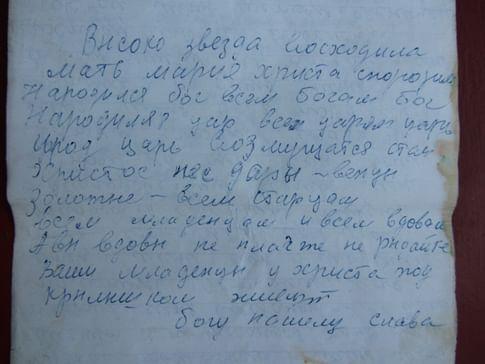 Високо звезда восходила
Мать Мария христа спородила
Народился бог всем богам бог
Народился цар всем царям царь
Ирод царь возмущатся стал
Христос нес дары – венцы
Золотые – всем старцам
Всем младенцам и всем вдовам
А вы вдовы не плачте не рыдайте
Ваши младенцы у христа под
крылышком живут
богу нашему слава